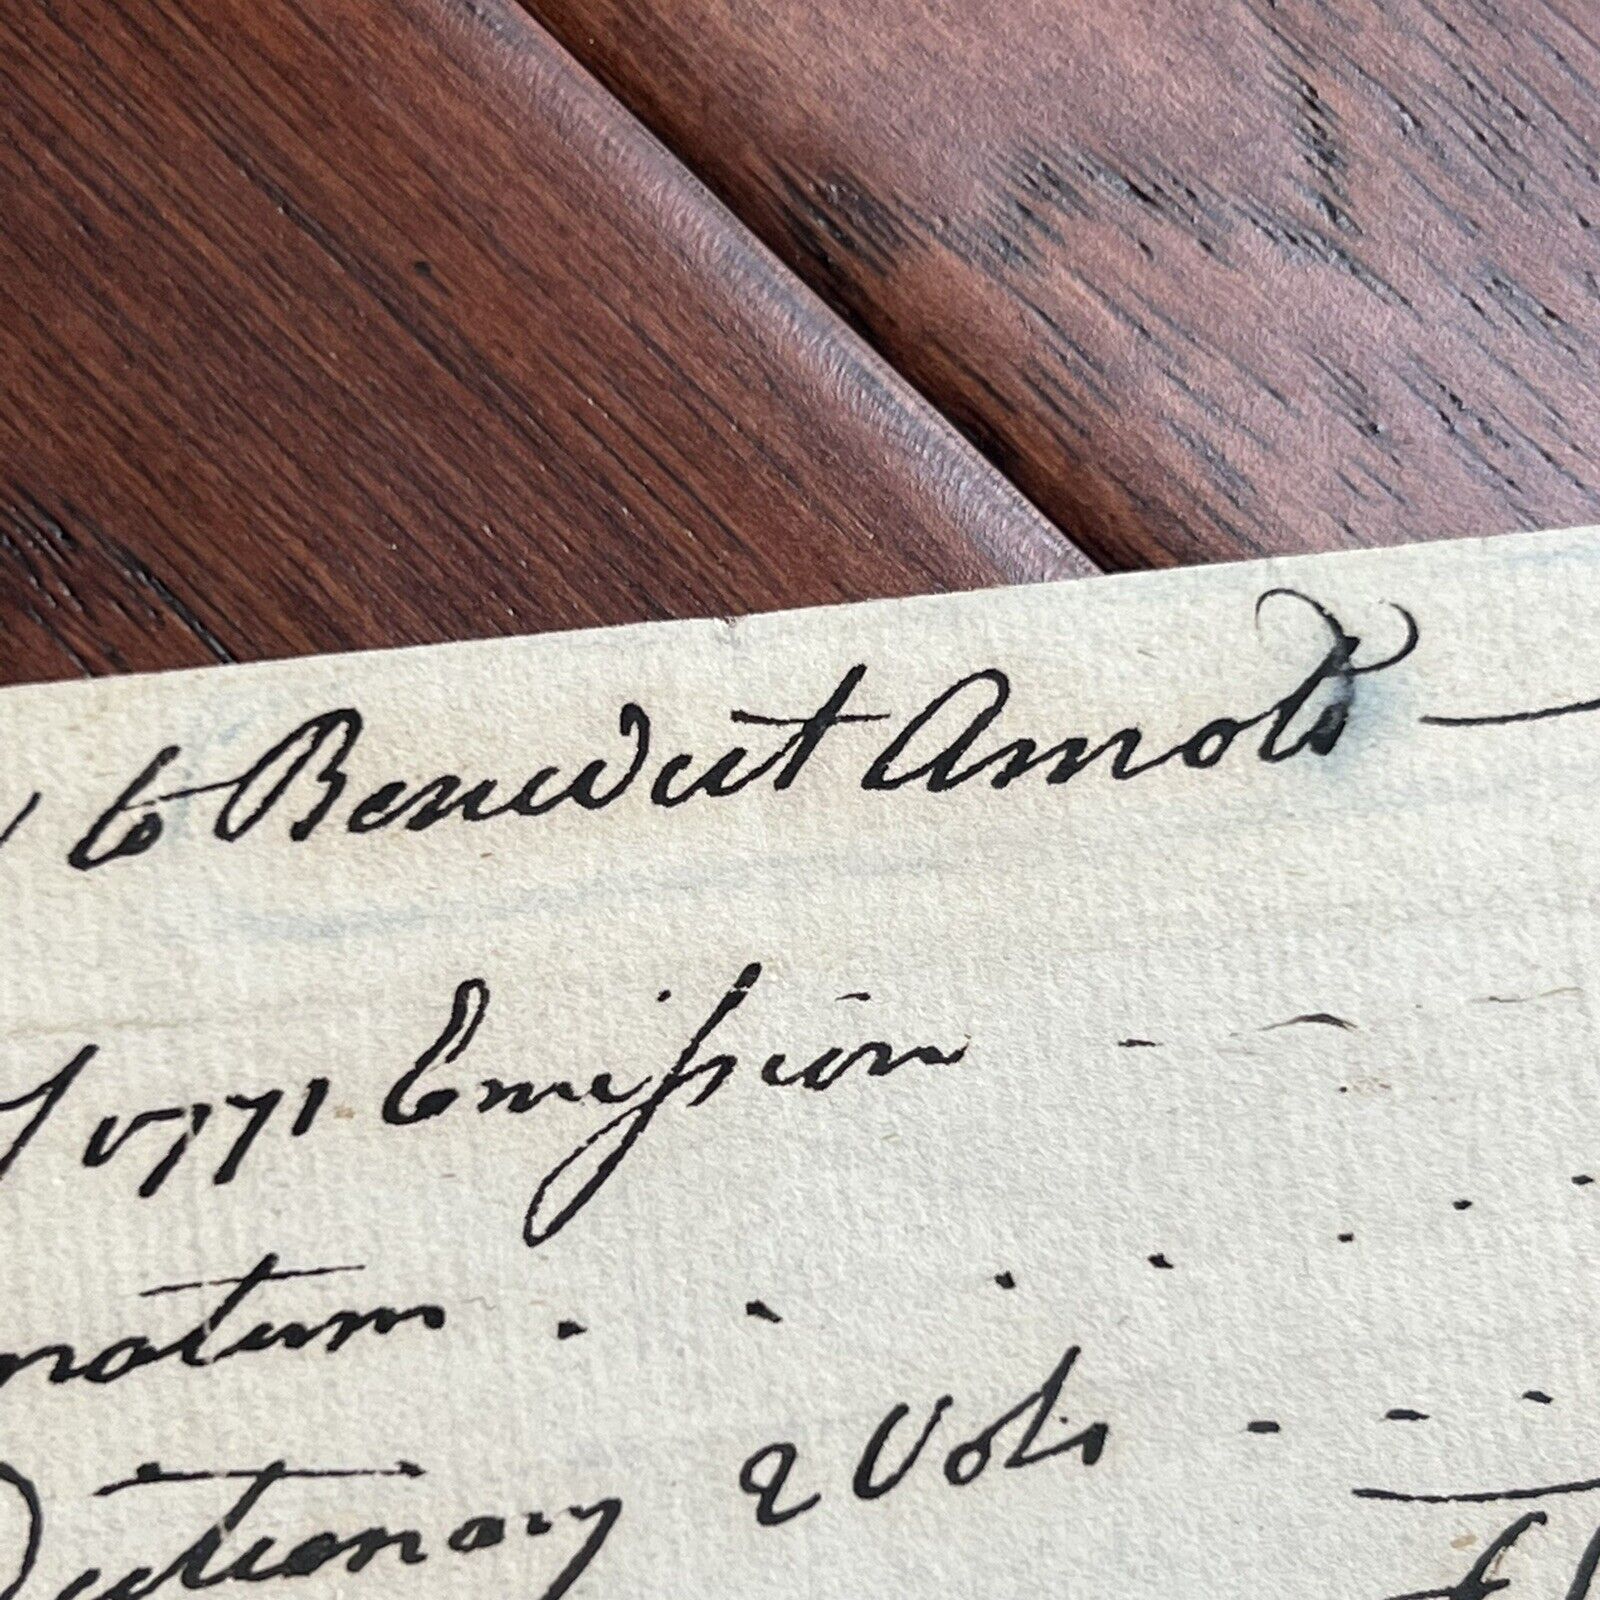 to Benedict Arnold —
1771 Emission - -
natum . . . . . .
Dictionary 2 Vols - - -